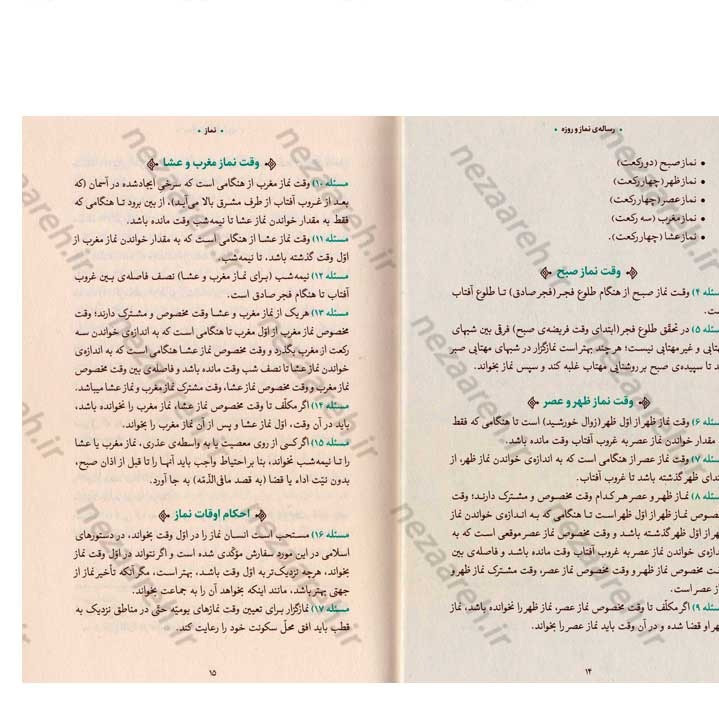 رساله‌ی نماز و روزه
• نماز صبح (دو رکعت)
• نماز ظهر (چهار رکعت)
• نماز عصر (چهار رکعت)
• نماز مغرب (سه رکعت)
• نماز عشا (چهار رکعت).
وقت نماز صبح
۴) وقت نماز صبح از هنگام طلوع فجر (فجر صادق) تا طلوع آفتاب
ست.
۵) در تحقّق طلوع فجر (ابتدای وقت فریضه‌ی صبح) فرقی بین شبهای
و غیر مهتابی نیست؛ هر چند بهتر است نمازگزار در شبهای مهتابی صبر
تا سپیده‌ی صبح بر روشنایی مهتاب غلبه کند و سپس نماز بخواند.
وقت نماز ظهر و عصر
۶) وقت نماز ظهر از اوّل ظهر (زوال خورشید) است تا هنگامی که فقط
مقدار خواندن نماز عصر به غروب آفتاب وقت مانده باشد.
۷) وقت نماز عصر از هنگامی است که به اندازه‌ی خواندن نماز ظهر، از
ظهر گذشته باشد تا غروب آفتاب.
۸) نماز ظهر و عصر هر کدام وقت مخصوص و مشترک دارند؛ وقت
نماز ظهر از اوّل ظهر است تا هنگامی که به اندازه‌ی خواندن نماز
از اوّل ظهر گذشته باشد و وقت مخصوص نماز عصر موقعی است که به
خواندن نماز عصر به غروب آفتاب وقت مانده باشد و فاصله‌ی بین
مخصوص نماز ظهر و وقت مخصوص نماز عصر، وقت مشترک نماز ظهر و
عصر است.
۹) اگر مکلّف تا وقت مخصوص نماز عصر، نماز ظهر را نخوانده باشد، نماز
او قضا شده و در آن وقت باید نماز عصر را بخواند.
۱۴
• نماز •
وقت نماز مغرب و عشا
مسئله ۱۰) وقت نماز مغرب از هنگامی است که سرخی ایجادشده در آسمان (که
بعد از غروب آفتاب از طرف مشرق بالا می‌آید)، از بین برود تا هنگامی که
فقط به مقدار خواندن نماز عشا تا نیمه‌شب وقت مانده باشد.
مسئله ۱۱) وقت نماز عشا از هنگامی است که به مقدار خواندن نماز مغرب از
اوّل وقت گذشته باشد، تا نیمه‌شب.
مسئله ۱۲) نیمه‌شب (برای نماز مغرب و عشا) نصف فاصله‌ی بین غروب
آفتاب تا هنگام فجر صادق است.
مسئله ۱۳) هر یک از نماز مغرب و عشا وقت مخصوص و مشترک دارند؛ وقت
مخصوص نماز مغرب از اوّل مغرب تا هنگامی است که به اندازه‌ی خواندن سه
رکعت از مغرب بگذرد و وقت مخصوص نماز عشا هنگامی است که به اندازه‌ی
خواندن نماز عشا تا نصف شب وقت مانده باشد و فاصله‌ی بین وقت مخصوص
نماز مغرب و وقت مخصوص نماز عشا، وقت مشترک نماز مغرب و نماز عشا میباشد.
مسئله ۱۴) اگر مکلّف تا وقت مخصوص نماز عشا، نماز مغرب را نخوانده باشد،
باید در آن وقت، اوّل نماز عشا و پس از آن نماز مغرب را بخواند.
مسئله ۱۵) اگر کسی از روی معصیت یا به واسطه‌ی عذری، نماز مغرب یا عشا
را تا نیمه‌شب نخواند، بنا بر احتیاط واجب باید آنها را تا قبل از اذان صبح،
بدون نیّت ادا یا قضا (به قصد مافی‌الذّمّه) به جا آورد.
احکام اوقات نماز
مسئله ۱۶) مستحب است انسان نماز را در اوّل وقت بخواند، در دستورهای
اسلامی در این مورد سفارش مؤکّدی شده است و اگر نتواند در اوّل وقت نماز
بخواند، هرچه نزدیک‌تر به اوّل وقت باشد، بهتر است، مگر آنکه تأخیر نماز از
جهتی بهتر باشد، مانند اینکه بخواهد آن را به جماعت بخواند.
مسئله ۱۷) نمازگزار برای تعیین وقت نمازهای یومیّه حتّی در مناطق نزدیک به
قطب باید افق محلّ سکونت خود را رعایت کند.
۱۵
nezaareh.ir